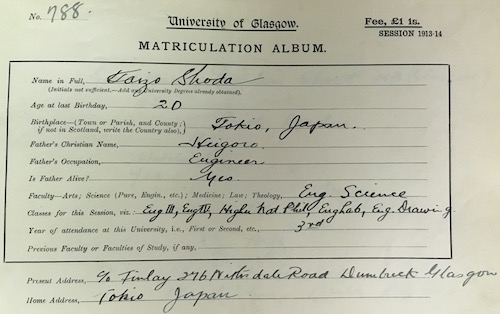 No. 788.
University of Glasgow.
Fee, £1 1s.
SESSION 1913-14
MATRICULATION ALBUM.
Name in Full, Taizo Shoda
(Initials not sufficient.—Add any University Degrees already obtained).
Age at last Birthday, 20
Birthplace—(Town or Parish, and County; if not in Scotland, write the Country also), Tokio, Japan.
Father's Christian Name, Heigoro.
Father's Occupation, Engineer
Is Father Alive? Yes.
Faculty—Arts; Science (Pure, Engin., etc.); Medicine; Law; Theology, Eng. Science
Classes for this Session, viz. : Eng III, Eng IV, Higher Nat Phil, Eng Lab, Eng. Drawing.
Year of attendance at this University, i.e., First or Second, etc., 3rd
Previous Faculty or Faculties of Study, if any,
Present Address, c/o Finlay 276 Nithsdale Road Dumbreck Glasgow
Home Address, Tokio Japan.